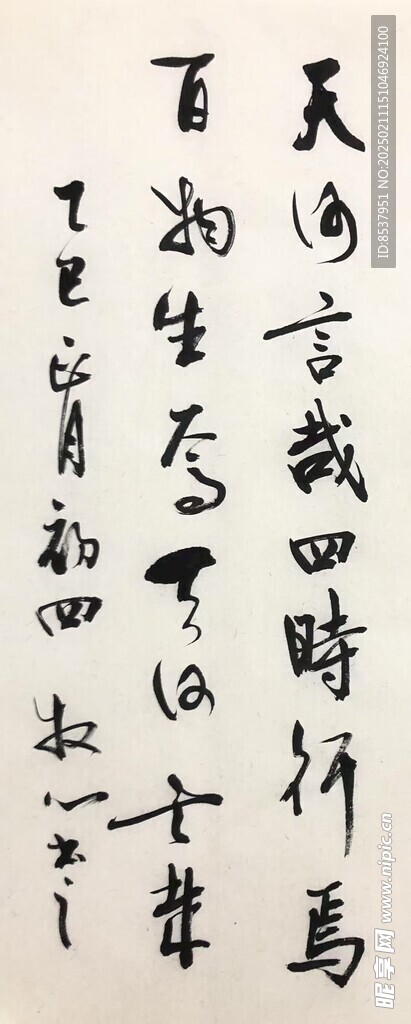 天何言哉四時行焉
百物生焉天何言哉
乙巳正月初四 牧心书之
昵享网 www.nipic.cn
ID:8537951 NO:20250211151046924100